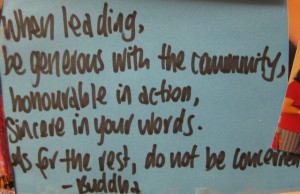 When leading,
be generous with the community,
honourable in action,
sincere in your words.
As for the rest, do not be concerned
- Buddha